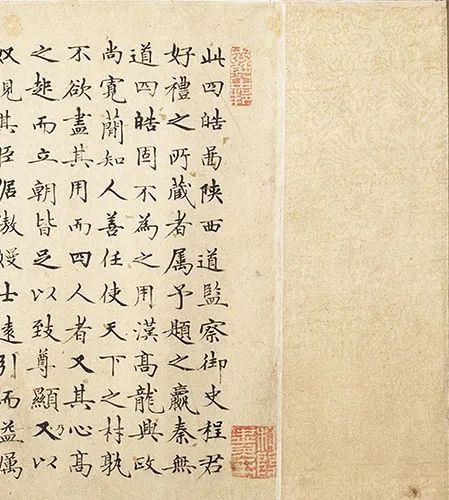 此四皓啚陝西道監察御史程君
好禮之所藏者属予題之嬴秦無
道四皓固不為之用漢髙龍興政
尚寛蕳知人善任使天下之材孰
不欲盡其用而四人者又其心髙
之而立朝皆足以致尊顯乃又以
奴視其臣倨傲嫚士遠引而益厲